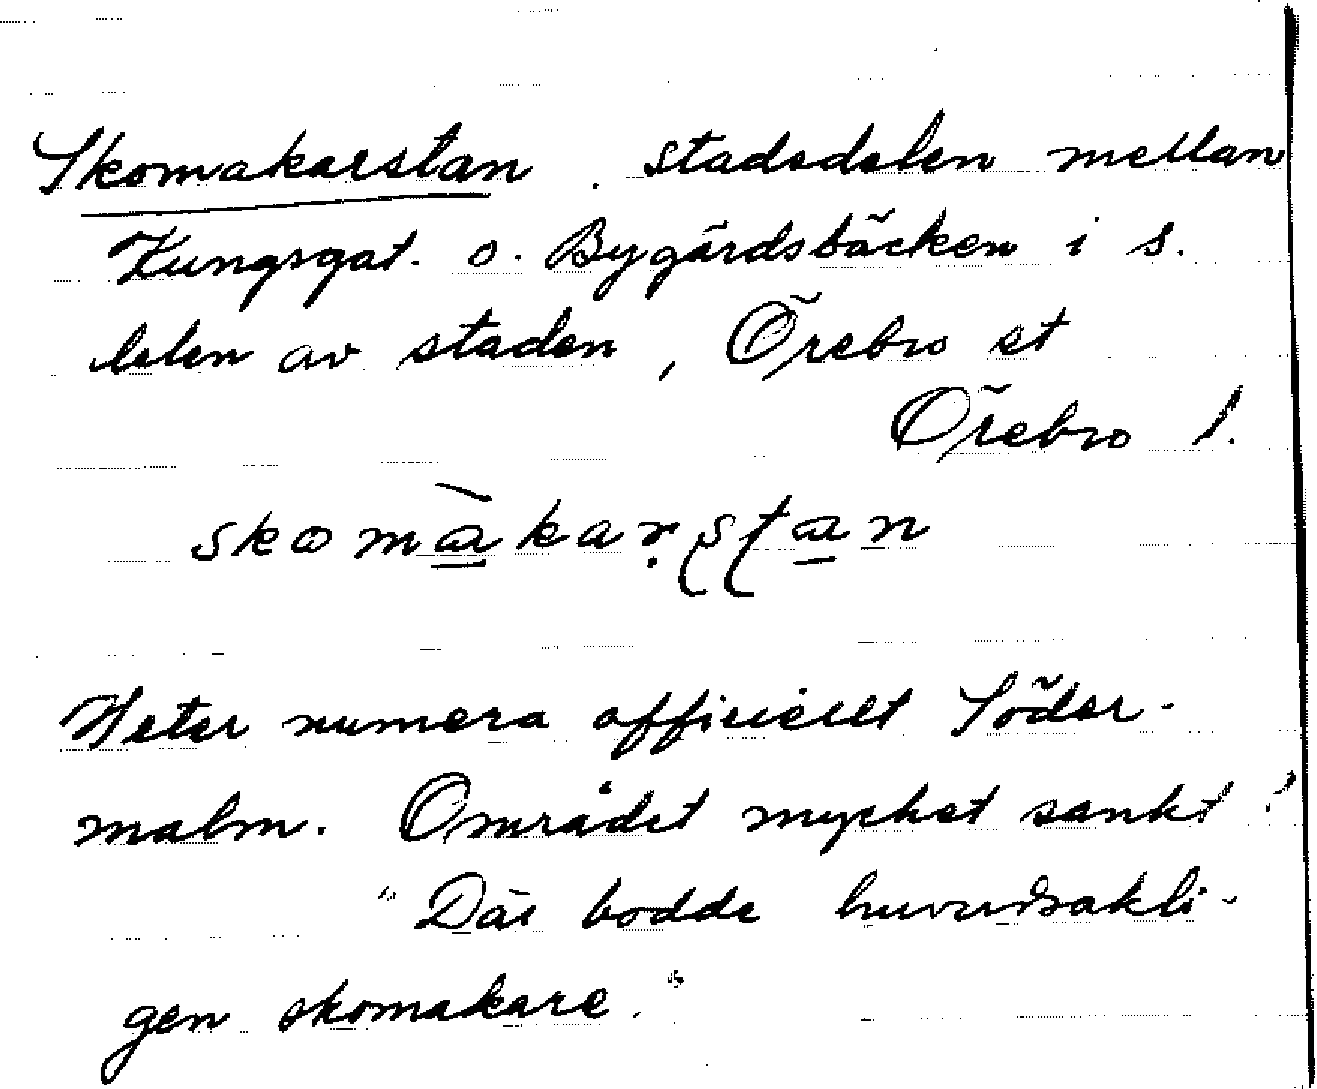 Skomakarstan . stadsdelen mellan
Kungsgat. o. Bygärdsbäcken i s.
delen av staden, Örebro st
Örebro l.
skomàkarstan
Heter numera officiellt Söder-
malm. Området mycket sankt!
"Där bodde huvudsakli-
gen skomakare."